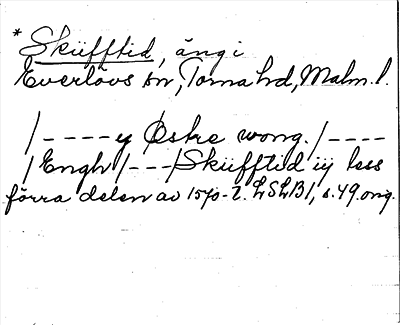 * Skiifftid, äng i
Everlövs sn, Torna hd, Malm. l.
/----y Østre wong. /----
/Engh/---/Skiifftid iij less
förra delen av 1570-t. LSLB1, s. 49. orig.